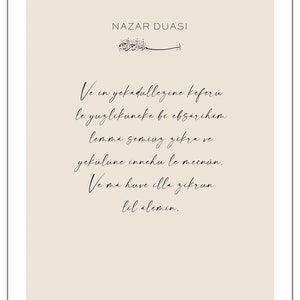 NAZAR DUASI
﷽
Ve in yekâdüllezîne keferû
le yuzlikûneke bi ebsârihim
lemmâ semiûz zikra ve
yekûlûne innehu le mecnûn.
Ve mâ huve illâ zikrun
lil âlemîn.